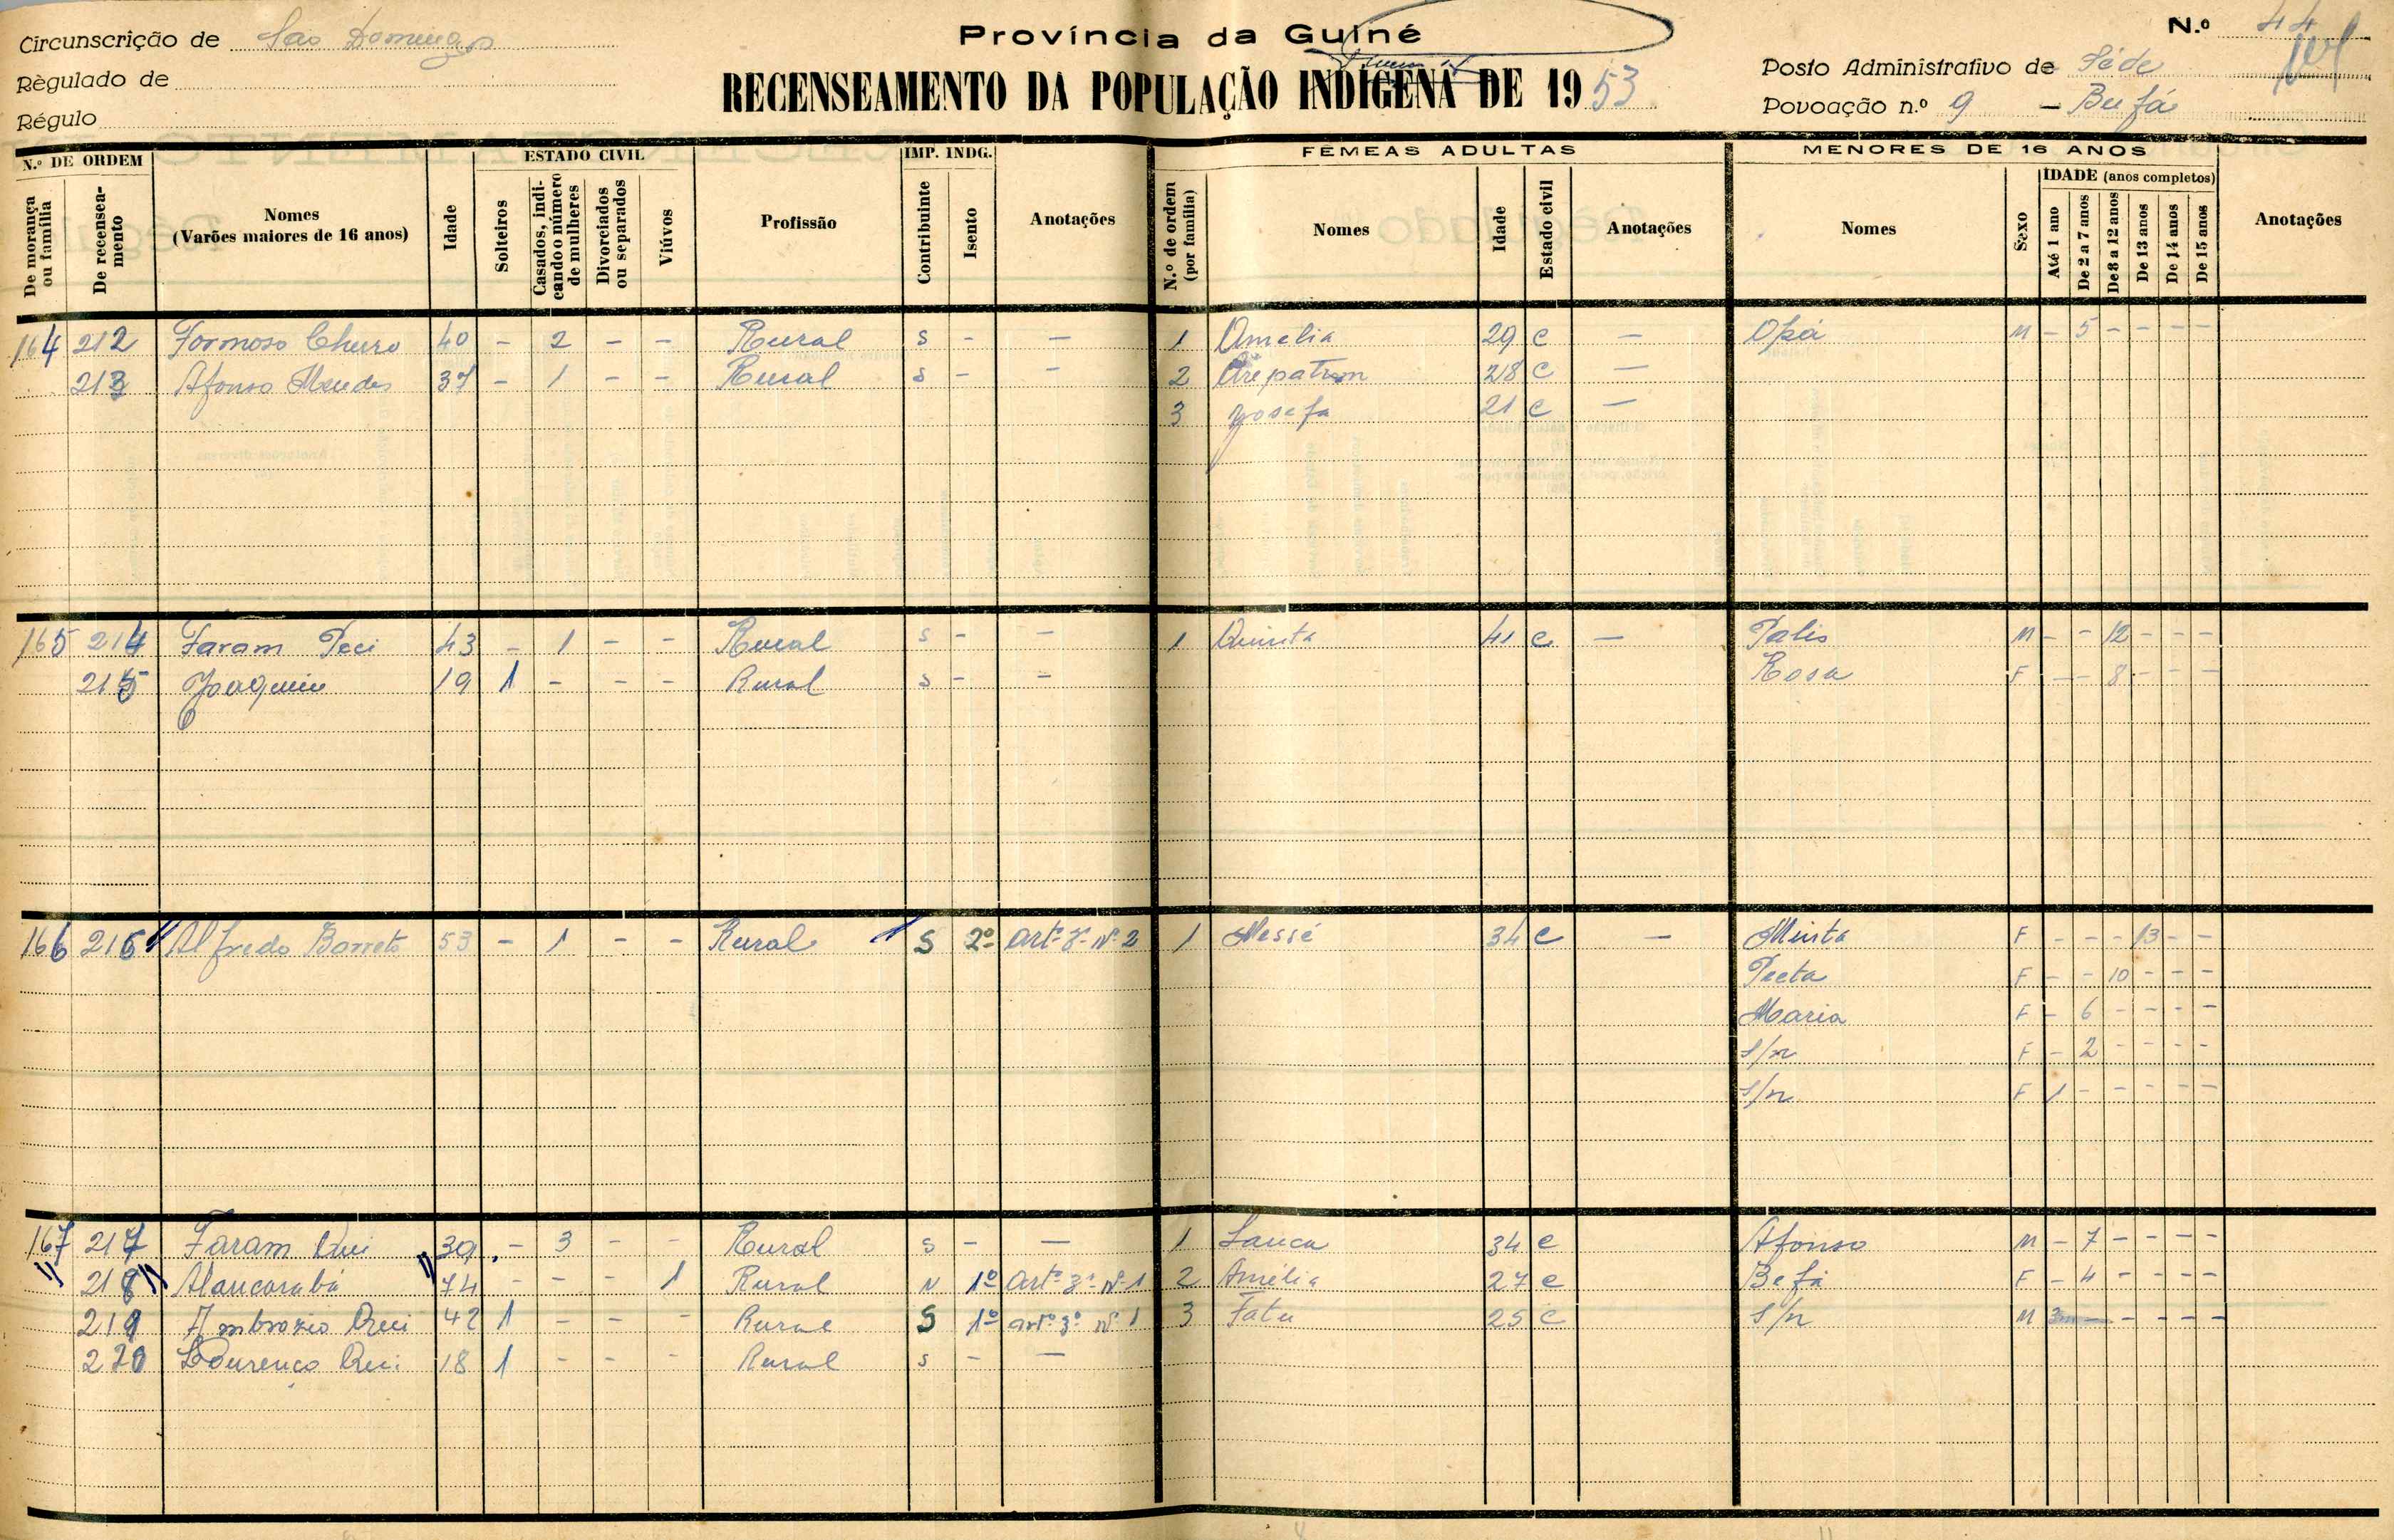 Província da Guiné
RECENSEAMENTO DA POPULAÇÃO INDÍGENA DE 1953
Circunscrição de São Domingos
Règulado de
Régulo
N.º 44
Posto Administrativo de Séde
Povoação n.º 9 — Bufá
N.º DE ORDEM
De morança ou família
De recenseamento
Nomes
(Varões maiores de 16 anos)
Idade
ESTADO CIVIL
Solteiros
Casados, indicando o número de mulheres
Divorciados ou separados
Viúvos
Profissão
IMP. INDG.
Contribuinte
Isento
Anotações
FEMEAS ADULTAS
N.º de ordem (por família)
Nomes
Idade
Estado civil
Anotações
MENORES DE 16 ANOS
Nomes
Sexo
IDADE (anos completos)
Até 1 ano
De 2 a 7 anos
De 8 a 12 anos
De 13 anos
De 14 anos
De 15 anos
Anotações
164 212 Formoso Churo 40 - 2 - - Rural S - - 1 Amelia 29 C - Opá M - 5 - - - -
213 Afonso Mendes 37 - 1 - - Rural S - - 2 28 C -
3 Josefa 21 C -
165 214 Faram Peci 43 - 1 - - Rural S - - 1 Quinta 41 C - Palis M - - 12 - - -
215 Joaquim 19 1 - - - Rural S - - Rosa F - - 8 - - -
166 216 Alfredo Barreto 53 - 1 - - Rural S 2º Artº 3º nº 2 1 Messé 34 C - Minta F - - - 13 - -
F - - 10 - - -
Maria F - 6 - - - -
S/n F - 2 - - - -
S/n F 1 - - - - -
167 217 Faram 39 - 3 - - Rural S - - 1 34 C Afonso M - 7 - - - -
218 Alancarabá 74 - - - 1 Rural N 1º Artº 3º nº 1 2 Amélia 27 C Befá F - 4 - - - -
219 Ambrozio 42 1 - - - Rural S 1º artº 3º nº 1 3 Fatu 25 C S/n M
220 Lourenço 18 1 - - - Rural S - -